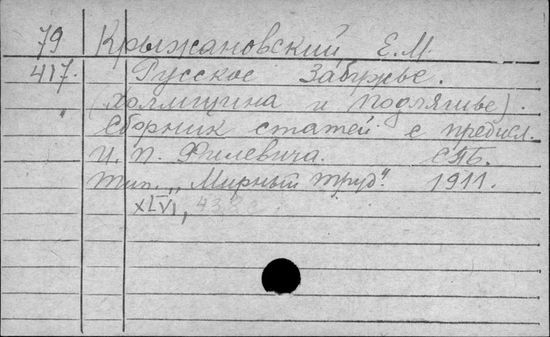 79 Крыжановский Е.М.
417. Русское Забужье.
" (Холмщина и Подляшье).
Сборник статей с предисл.
И. П. Филевича. СПБ.
Тип. „Мирный труд". 1911.
XLVI,